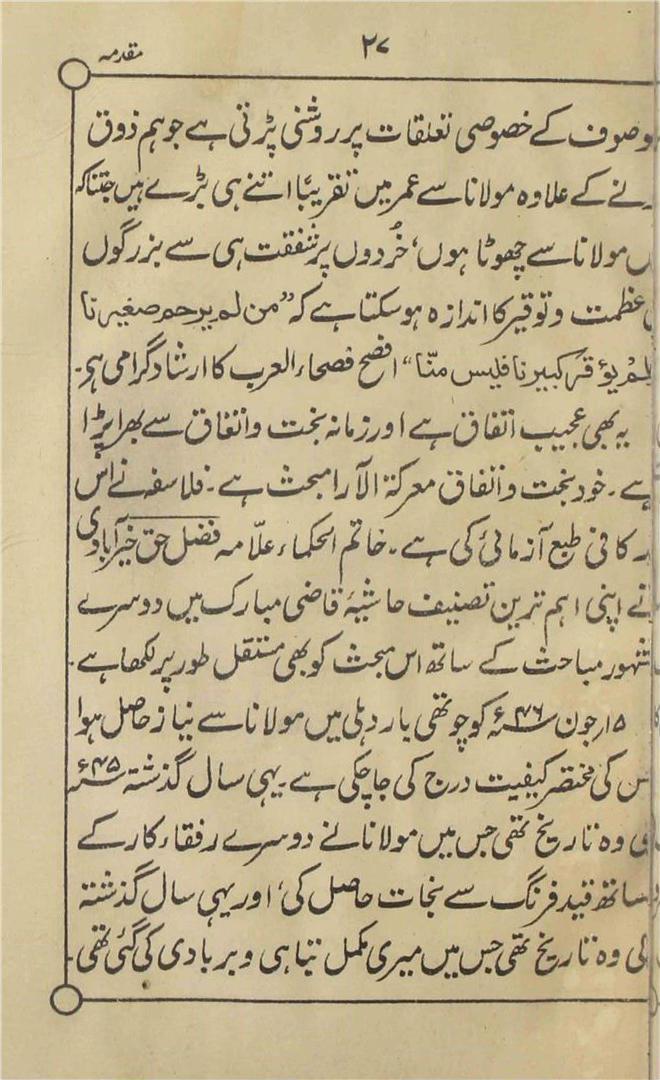 ۲۷
مقدمہ
موصوف کے خصوصی تعلقات پر روشنی پڑتی ہے جو ہم ذوق
نے کے علاوہ مولانا سے عمر میں تقریبًا اتنے ہی بڑے ہیں جتنا کہ
مولانا سے چھوٹا ہوں، خُردوں پر شفقت ہی سے بزرگوں
عظمت و توقیر کا اندازہ ہو سکتا ہے کہ ”من لم یرحم صغیرنا
یؤقر کبیرنا فلیس منّا“ افصح فصحاء العرب کا ارشاد گرامی ہی۔
یہ بھی عجیب اتفاق ہے اور زمانہ بخت و اتفاق سے بھرا پڑا
ہے۔ خود بخت و اتفاق معرکۃ الآرا مبحث ہے۔ فلاسفہ نے اس
کافی طبع آزمائی کی ہے۔ خاتم الحکماء علّامہ فضل حق خیرآبادی
نے اپنی اہم ترین تصنیف حاشیۂ قاضی مبارک میں دوسرے
مشہور مباحث کے ساتھ اس مبحث کو بھی مستقل طور پر لکھا ہے۔
۱۵ر جون ۴۶ء کو چوتھی بار دہلی میں مولانا سے نیاز حاصل ہوا
کی مختصر کیفیت درج کی جا چکی ہے۔ یہی سال گذشتہ ۴۵ء
وہ تاریخ تھی جس میں مولانا نے دوسرے رفقاء کار کے
ساتھ قید فرنگ سے نجات حاصل کی، اور یہی سال گذشتہ
کی وہ تاریخ تھی جس میں میری مکمل تباہی و بربادی کی گئی تھی۔